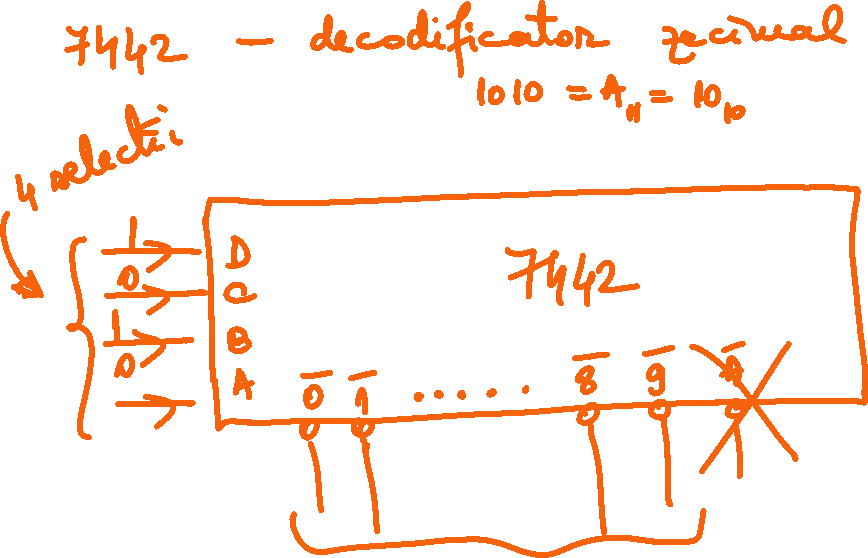 7442 – decodificator zecimal
1010 = A_H = 10_10
4 selectii
1 D
0 C 7442
1 B
0 A
0̅ 1̅ ..... 8̅ 9̅ A̅